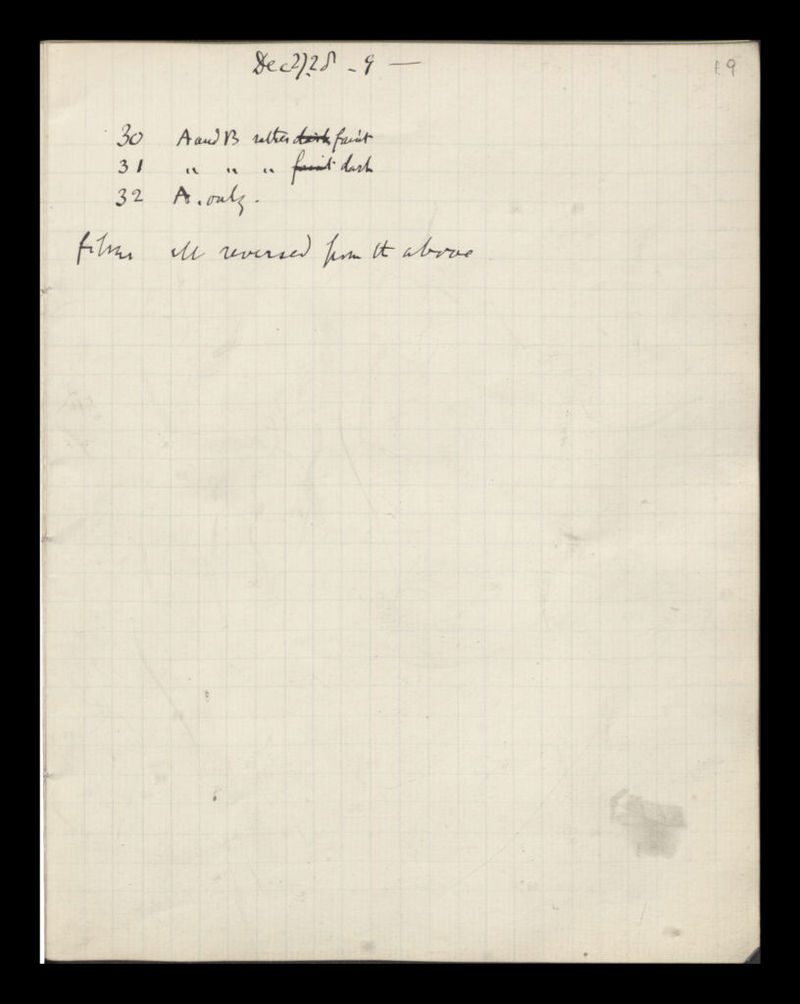 Dec 27. 28 - 9 —
19
30 A and B rather dark faint
31 " " " faint dark
32 A. only.
films all reversed from the above